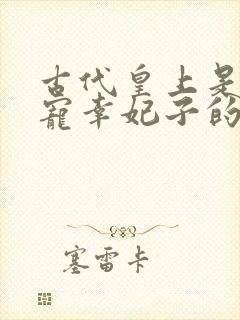 古代皇上是
宠幸妃子的
塞雷卡